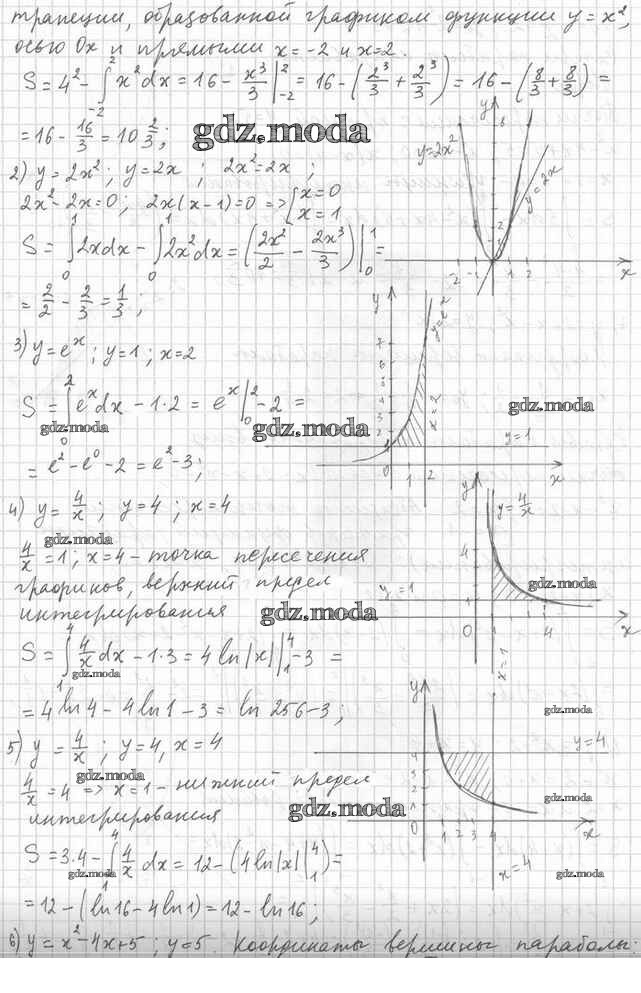 трапеции, образованной графиком функции y = x²,
осью Ox и прямыми x = -2 и x = 2.
S = 4² - ∫₋₂² x² dx = 16 - x³/3 |₋₂² = 16 - (2³/3 + 2³/3) = 16 - (8/3 + 8/3) =
= 16 - 16/3 = 10 2/3;
gdz.moda
2) y = 2x²; y = 2x; 2x² = 2x;
2x² - 2x = 0; 2x(x - 1) = 0 => [x = 0
x = 1
S = ∫₀¹ 2x dx - ∫₀¹ 2x² dx = (2x²/2 - 2x³/3) |₀¹ =
= 2/2 - 2/3 = 1/3;
y
8
y=2x²
y=2x
2
1
-2 -1 1 2 x
3) y = eˣ; y = 1; x = 2
S = ∫₀² eˣ dx - 1·2 = eˣ |₀² - 2 =
gdz.moda
gdz.moda
gdz.moda
= e² - e⁰ - 2 = e² - 3;
y
7
6
5
4
3
2
x = 2
y=1
0 1 2 x
4) y = 4/x; y = 4; x = 4
gdz.moda
4/x = 1; x = 4 - точка пересечения
графиков, верхний предел
интегрирования
gdz.moda
gdz.moda
S = ∫₁⁴ 4/x dx - 1·3 = 4 ln|x| |₁⁴ - 3 =
gdz.moda
= 4 ln 4 - 4 ln 1 - 3 = ln 256 - 3;
y
y = 4/x
4
y=1
0 1 4 x
x=1
5) y = 4/x; y = 4, x = 4
gdz.moda
4/x = 4 => x = 1 - нижний предел
интегрирования
gdz.moda
gdz.moda
gdz.moda
S = 3·4 - ∫₁⁴ 4/x dx = 12 - (4 ln|x| |₁⁴) =
gdz.moda
gdz.moda
= 12 - (ln 16 - 4 ln 1) = 12 - ln 16;
y
y=4
4
3
2
1
0 1 2 3 4 x
x=4
6) y = x² - 4x + 5; y = 5. Координаты вершины параболы: